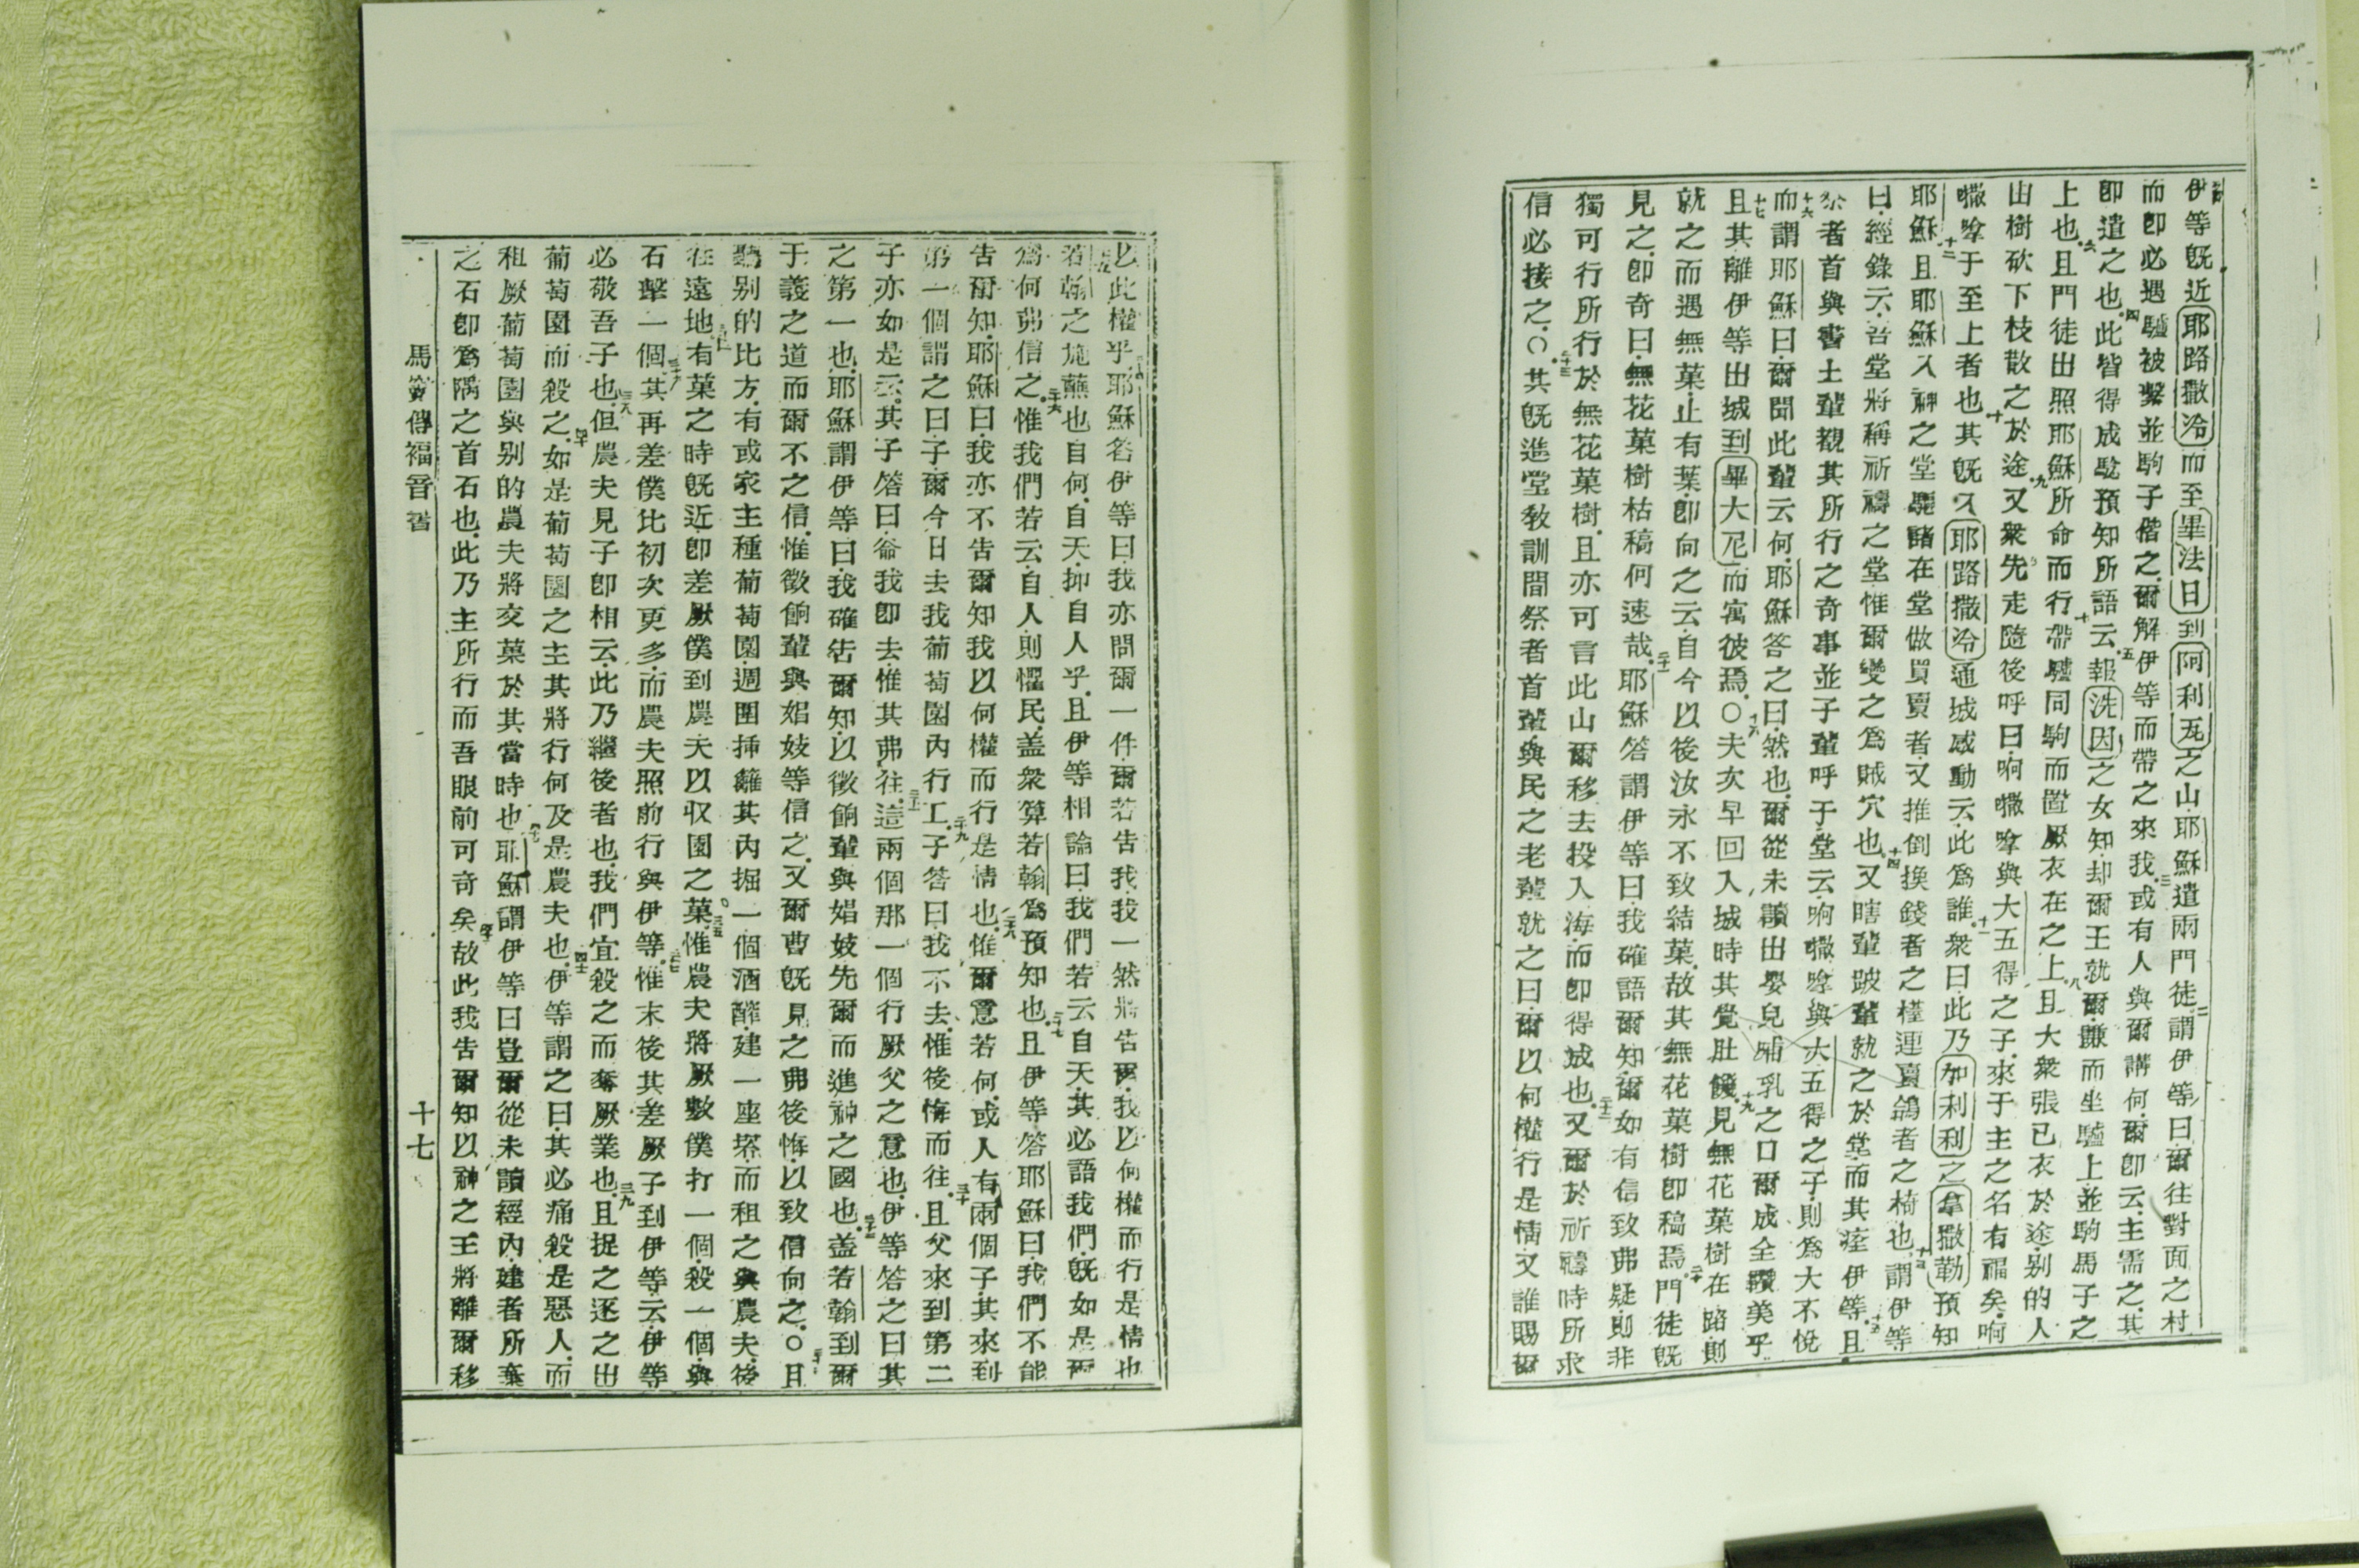 伊等旣近耶路撒冷而至畢法日到阿利瓦之山耶穌遣兩門徒二謂伊等曰爾往對面之村
而卽必遇驢被繫並駒子偕之爾解伊等而帶之來我三或有人與爾講何爾卽云主需之其
卽遣之也四此皆得成驗預知所語云五報洗因之女知却爾王就爾謙而坐驢上並駒馬子之
上也六且門徒出照耶穌所命而行七帶驢同駒而置厥衣在之上八且大衆張已衣於途別的人
由樹砍下枝散之於途九又衆先走隨後呼曰呵㗭嗱與大五得之子來于主之名有福矣呵
㗭嗱于至上者也十其旣入耶路撒冷通城感動云此爲誰十一衆曰此乃加利利之拿撒勒預知
耶穌十二且耶穌入神之堂驅諸在堂做買賣者又推倒換錢者之檯連賣鴿者之椅也十三謂伊等
曰經錄云吾堂將稱祈禱之堂惟爾變之爲賊穴也十四又瞎輩跛輩就之於堂而其痊伊等十五且
祭者首與書士輩觀其所行之奇事並子輩呼于堂云呵㗭嗱與大五得之子則爲大不悅
十六而謂耶穌曰爾聞此輩云何耶穌答之曰然也爾從未讀出嬰兒哺乳之口爾成全讚美乎
十七且其離伊等出城到畢大尼而寓彼焉〇十八夫次早回入城時其覺肚饑十九見無花菓樹在路則
就之而遇無菓止有葉卽向之云自今以後汝永不致結菓故其無花菓樹卽稿焉二十門徒旣
見之卽奇曰無花菓樹枯稿何速哉二十一耶穌答謂伊等曰我確語爾知爾如有信致弗疑則非
獨可行所行於無花菓樹且亦可言此山爾移去投入海而卽得成也二十二又爾於祈禱時所求
信必接之〇二十三其旣進堂敎訓間祭者首輩與民之老輩就之曰爾以何權行是情又誰賜爾
以此權乎二十四耶穌答伊等曰我亦問爾一件爾若告我我一然將告爾我以何權而行是情也
二十五若翰之施蘸也自何自天抑自人乎且伊等相論曰我們若云自天其必語我們旣如是爾
爲何弗信之二十六惟我們若云自人則懼民蓋衆算若翰爲預知也二十七且伊等答耶穌曰我們不能
告爾知耶穌曰我亦不告爾知我以何權而行是情也二十八惟爾意若何或人有兩個子其來到
第一個謂之曰子爾今日去我葡萄園內行工二十九子答曰我不去惟後悔而往三十且父來到第二
子亦如是云其子答曰爺我卽去惟其弗往三十一這兩個那一個行厥父之意也伊等答之曰其
之第一也耶穌謂伊等曰我確告爾知以徵餉輩與娼妓先爾而進神之國也三十二蓋若翰到爾
于義之道而爾不之信惟徵餉輩與娼妓等信之又爾曹旣見之弗後悔以致信向之〇三十三且
聽別的比方有或家主種葡萄園週圍揷籬其內掘一個酒醡建一座塔而租之與農夫後
往遠地三十四有菓之時旣近卽差厥僕到農夫以收園之菓三十五惟農夫將厥數僕打一個殺一個與
石擊一個三十六其再差僕比初次更多而農夫照前行與伊等三十七惟末後其差厥子到伊等云伊等
必敬吾子也三十八但農夫見子卽相云此乃繼後者也我們宜殺之而奪厥業也三十九且捉之逐之出
葡萄園而殺之四十如是葡萄園之主其將行何及是農夫也四十一伊等謂之曰其必痛殺是惡人而
租厥葡萄園與別的農夫將交菓於其當時也四十二耶穌謂伊等曰豈爾從未讀經內建者所棄
之石卽爲隅之首石也此乃主所行而吾眼前可奇矣四十三故此我告爾知以神之王將離爾移
馬竇傳福音書 十七